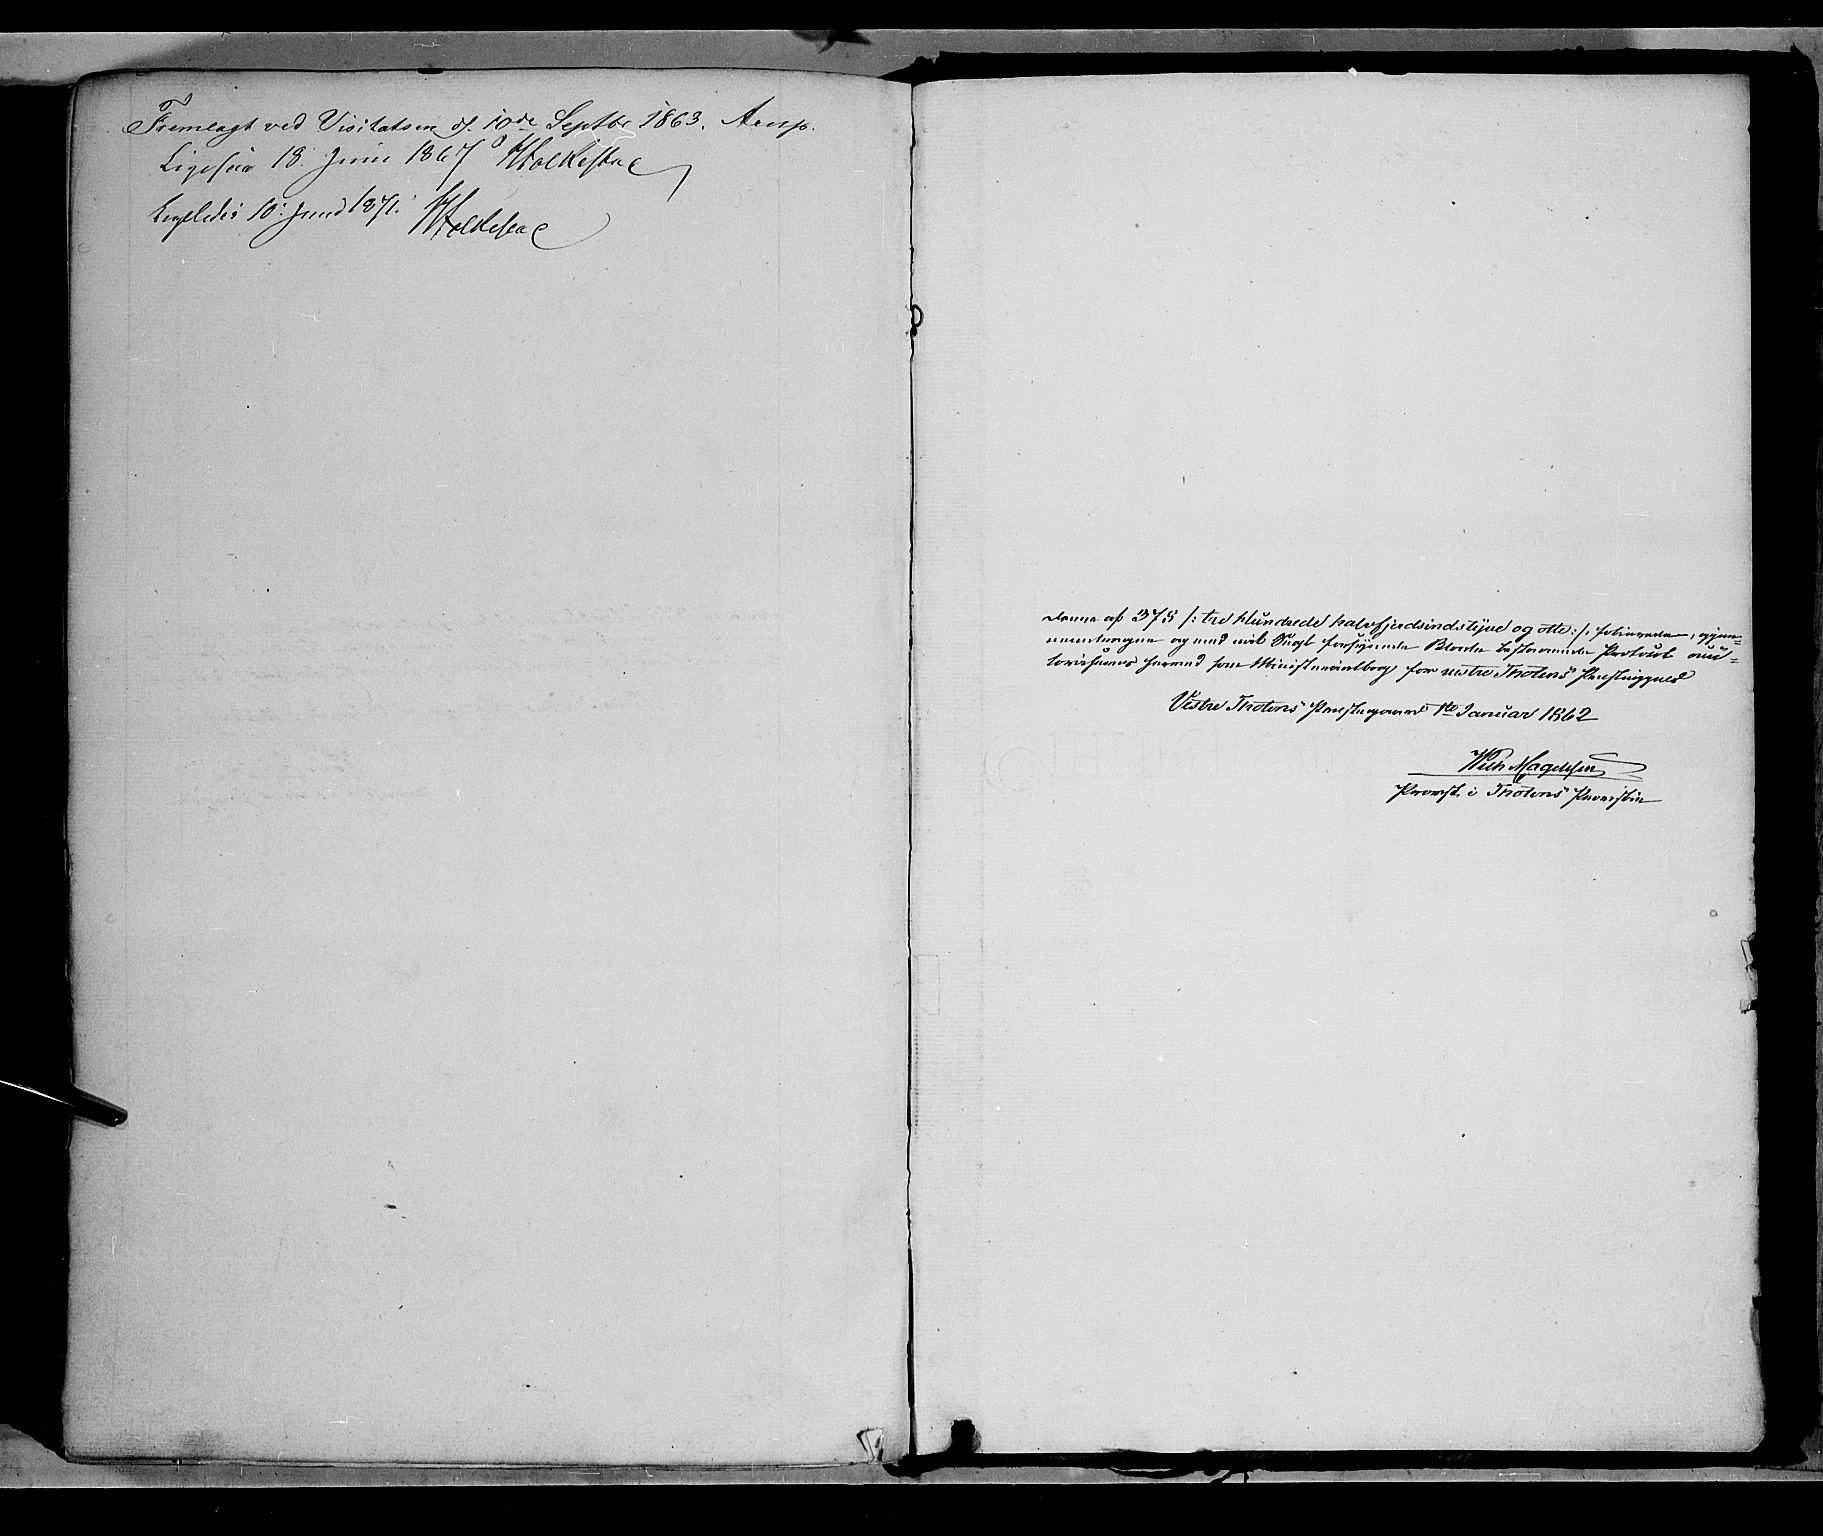 Fremlagt ved Visitatsen d. 10de Septbr 1863. Arup.
Ligesaa 18. Juni 1867 HFolkestad
Ligeledes 10. Juni 1871. HFolkestad
Denne af 378 /: tre Hundrede halvfjerdsindstyve og otte :/ folierede, gjen-
nemdragne og med mit Segl forsynede Blade bestaaende Protocol auc-
toriseres herved som Ministerialbog for vestre Thotens Præstegjeld
Vestre Thotens Præstegaard 1te Januar 1862
Wilh Magelssen
Provst i Thotens Provstie